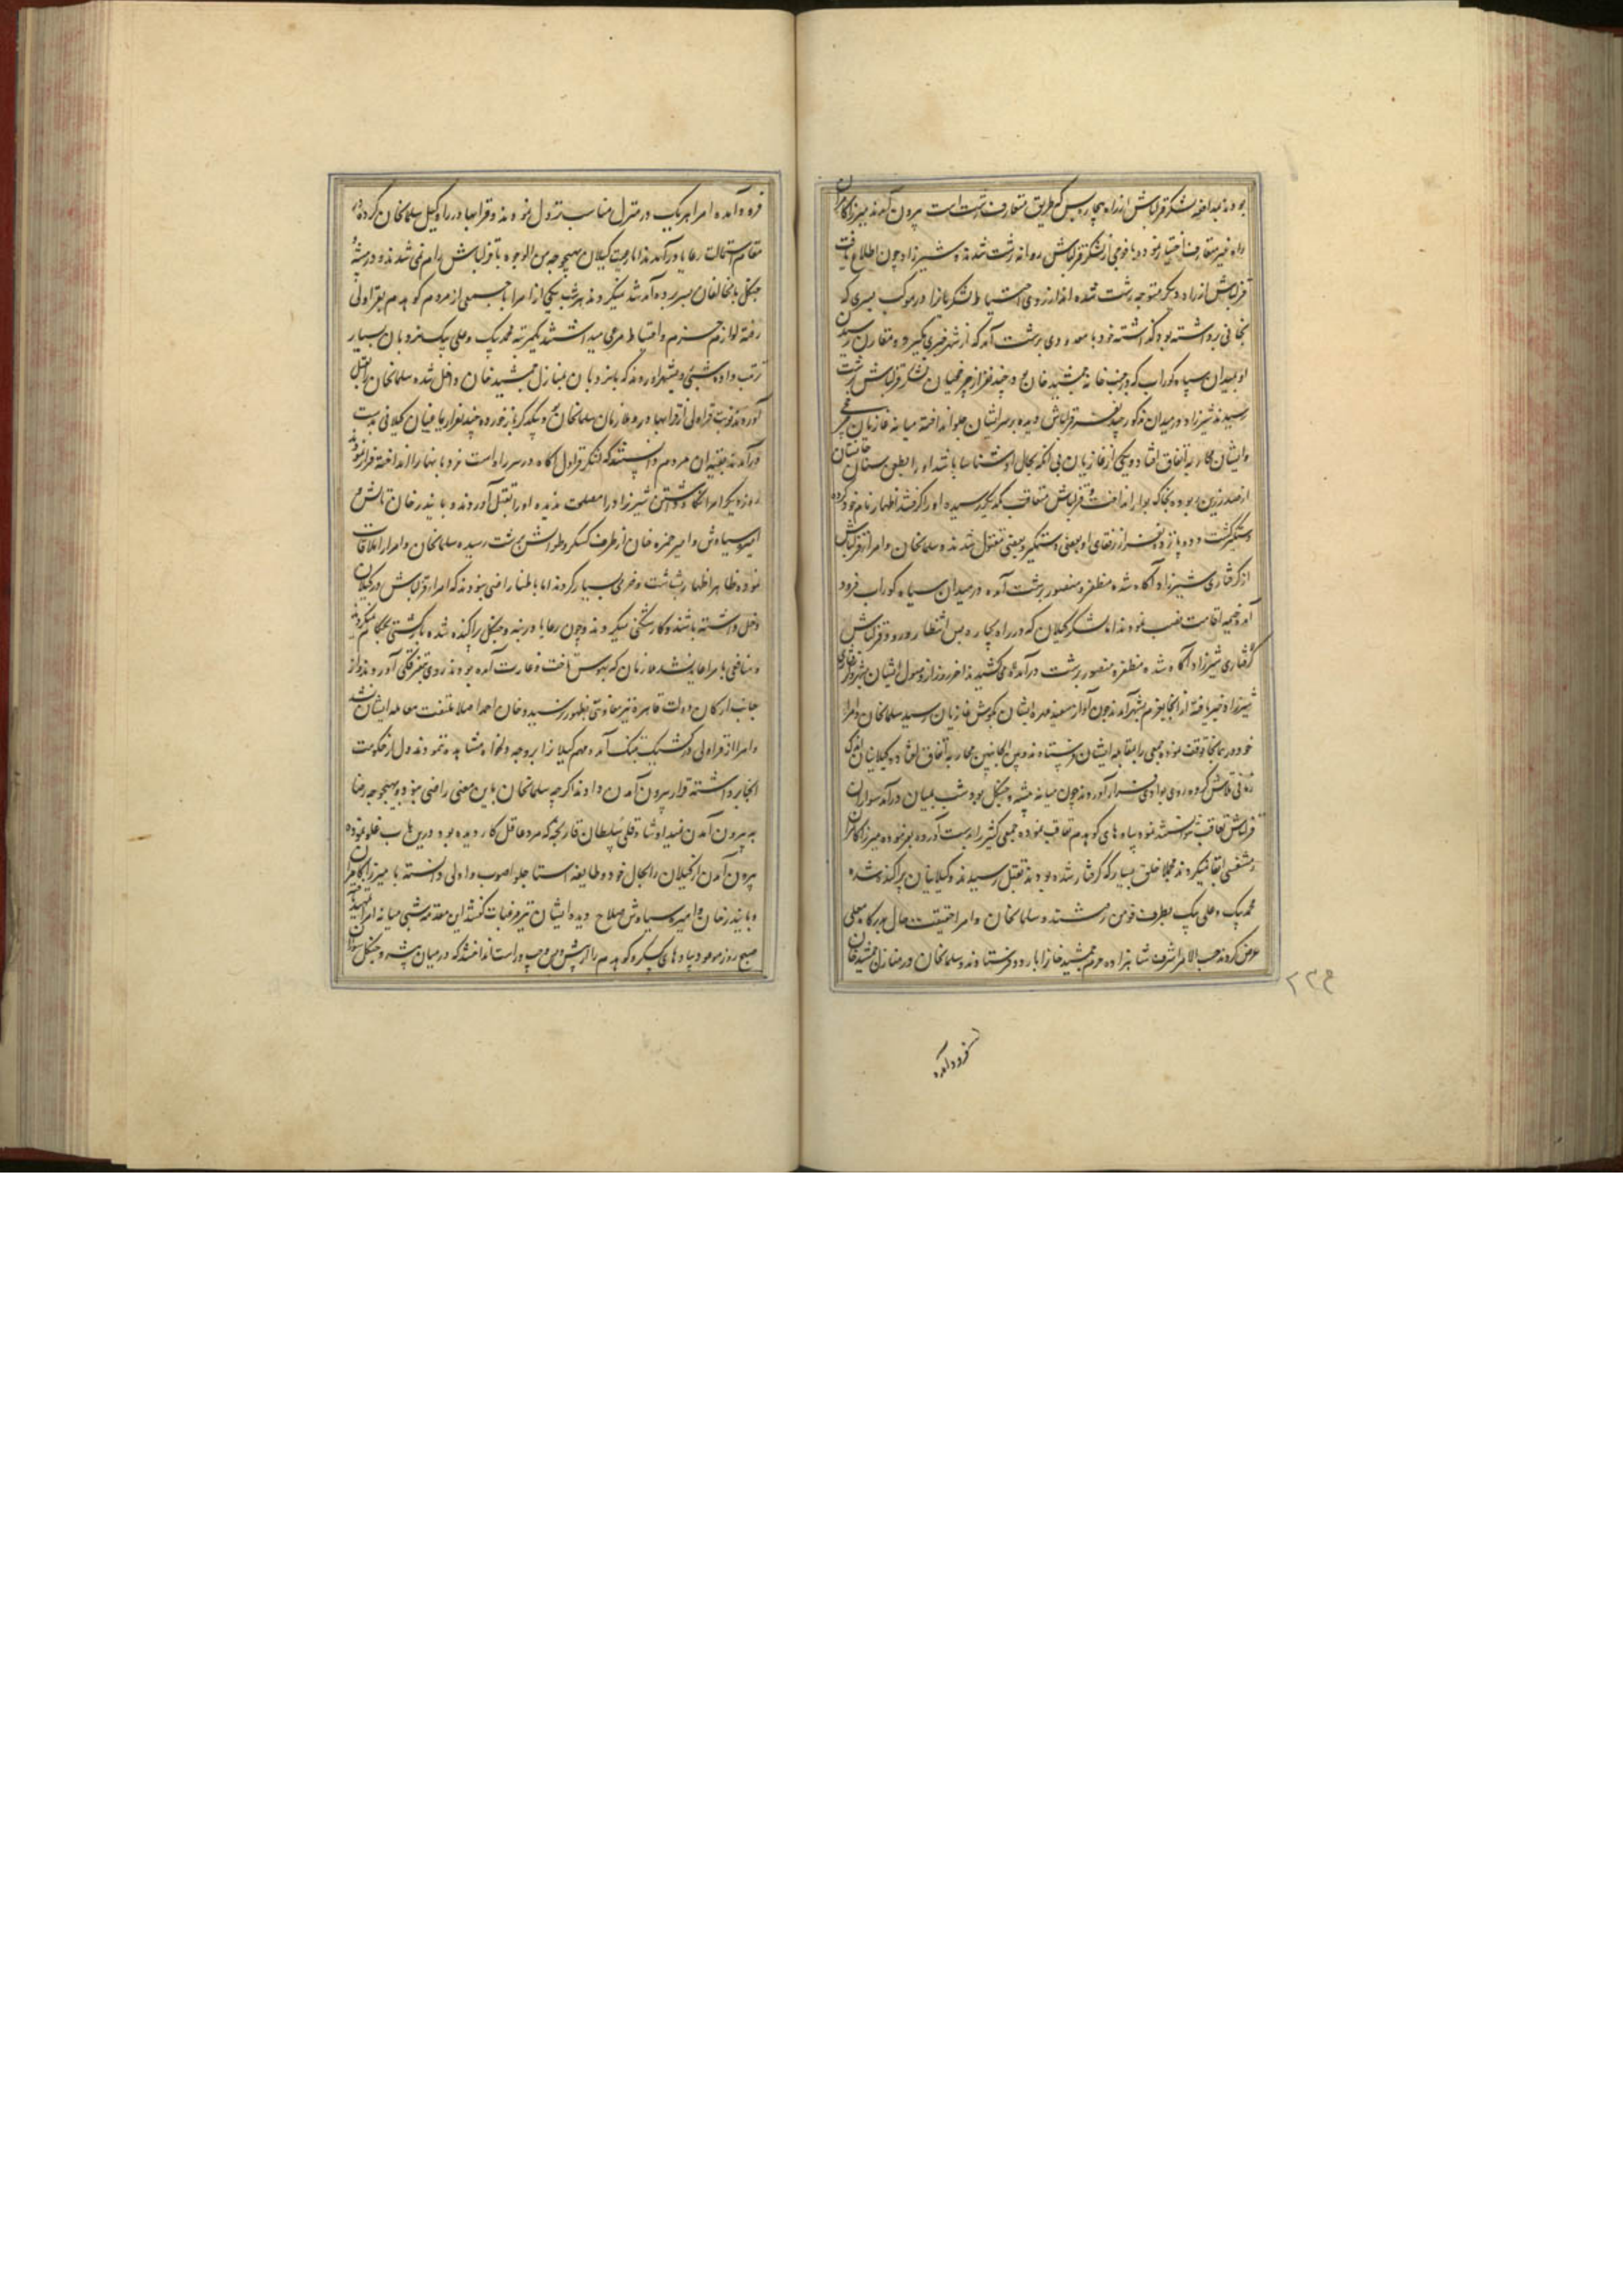 بودند بعد از آنکه لشکر قزلباش از راه پیچاره پس که طریق متعارف رشت است بیرون آمدند میرزا کامران
راه غیر متعارف اختیار نموده با فوجی از لشکر قزلباش روانه رشت شدند و شیرزاد چون اطلاع یافت
قزلباش از راه دیگر متوجه رشت شده اند از روی احتیاط لشکر باز در موکب پسری که
بخانی برداشته بود گذاشته خود با معدودی برشت آمد که از شهر خبری گیرد و مقارن رسیدن
او بمیدان سیاه کوراب که در جنب خانه جمشید خان بود چند نفر از چرخچیان لشکر قزلباش برشت
رسیدند شیرزاد در میدان مذکور چند نفر قزلباش دیده بر سر ایشان جلو انداخته میانه غازیان چرخچی
و ایشان محاربه اتفاق افتاد و یکی از غازیان بی آنکه بحال او شناسا باشد او را بطعن سنان جانستان
از صدر زین ربوده بخاک بوار انداخت و قزلباش متعاقب یکدیگر رسیده او را گرفتند اظهار نام خود کرده
دستگیر گشت و ده پانزده نفر از رفقای او بعضی دستگیر و بعضی مقتول شدند و سلمان خان و امرا قزلباش
از گرفتاری شیرزاد آگاه شده مظفر و منصور برشت آمده در میدان سیاه کوراب فرود
آمد و خیمه اقامت نصب نمودند اما لشکر گیلان که در راه پیچاره پس انتظار ورود قزلباش
گرفتاری شیرزاد آگاه شده مظفر و منصور برشت درآمده می کشیدند آخر روز از وصول ایشان بشهر و گرفتاری
شیرزاد خبر یافته از آنجا بعزم شهر آمدند چون آواز سفید مهره ایشان بگوش غازیان رسید سلمان خان و امرا
خود در همانجا توقف نموده جمعی را بمقابله ایشان فرستادند و بین الجانبین محاربه اتفاق افتاد و گیلانیان اندک
زمانی تلاش کرده روی بوادی فرار آوردند چون میانه بیشه و جنگل بود و شب بمیان درآمد سواران
قزلباش تعاقب نتوانستند نمود پیاده های کوهدم تعاقب نموده جمعی کثیر را بدست آورده بهر نموده میرزا کامران
متنفسی ابقا نمیکردند مجملا خلق بسیار که گرفتار شده بودند بقتل رسیدند و گیلانیان پراکنده شده
محمد بیک و علی بیک بطرف فومن رفتند و سلمان خان و امرا حقیقت حال بدرگاه معلی
عرض کردند حسب الامر اشرف شاهزاده مریم جمشید خان را باردو فرستادند و سلمان خان در منازل جمشید خان
۲۲۴
فرود آمده
فرود آمده امرا هر یک در منزل مناسب نزول نمودند و قرابها در راه وکیل سلمان خان کرده در
مقام استمالت رعایا درآمدند اما رعیت گیلان بهیچوجه من الوجوه با قزلباش رام نمی شدند و در بیشه و
جنگل با مخالفان بسر برده آمد شد میکردند هر شب یکی از امرا با جمعی از مردم کوهدم بقراولی
رفته لوازم حزم و احتیاط مرعی میداشتند یکمرتبه محمد بیک و علی بیک نردبان بسیار
ترتیب داده شبی بشهر آمدند که با نردبان بمنازل جمشید خان داخل شده سلمان خان را بقتل
آورند نوبت قراولی از قرابها در ملازمان سلمان خان بود بیکدیگر باز خورده چند نفر از یاغیان گیلانی بدست
درآمدند بقیه آن مردم دانستند که لشکر قراول آگاه در سر راه است نردبانها را انداخته فرار نمودند
روز دیگر امرا نگاه داشتن شیرزاد را مصلحت ندیده او را بقتل آوردند و بایندر خان تالش و
امیره سیاوش و امیر حمزه خان از طرف کسکر و طوالش برشت رسیده سلمان خان و امرا را ملاقات
نموده ظاهرا اظهار بشاشت و خرمی بسیار کردند اما باطنا راضی نبودند که امراء قزلباش در گیلان
دخل داشته باشند و کارشکنی میکردند و چون رعایا در بیشه و جنگل پراکنده شده بازگشتی بحکام نمیکردند
و منافعی بامرا عاید نشد ملازمان که بهوس تاخت و غارت آمده بودند روی بتفرقگی آوردند و از
جانب ارکان دولت قاهره نیز معاونتی بظهور نرسید و خان احمد اصلا ملتفت معامله ایشان نشد
و امرا از قراولی و کشیک بتنگ آمده مهم گیلان را بر وجه دلخواه مشاهده ننمودند دل از حکومت
آنجا برداشته قرار بیرون آمدن دادند اگرچه سلمان خان باین معنی راضی نبود و بهیچوجه رضا
به بیرون آمدن نمیداد شاه قلی سلطان قارنجه که مرد عاقل کاردیده بود درین باب غلو نموده
بیرون آمدن از گیلان را بحال خود و طایفه استاجلو اصوب و اولی دانسته با میرزا کامران
و بایندر خان و امیره سیاوش صلاح دیده ایشان نیز مرغبات گفتند این مقدمه شبی میانه امرا تمهید یافته
صبح روز موعود پیاده های کسکر و کوهدم را از پیش و پس و چپ و راست انداختند که در میان بیشه و جنگل سواران